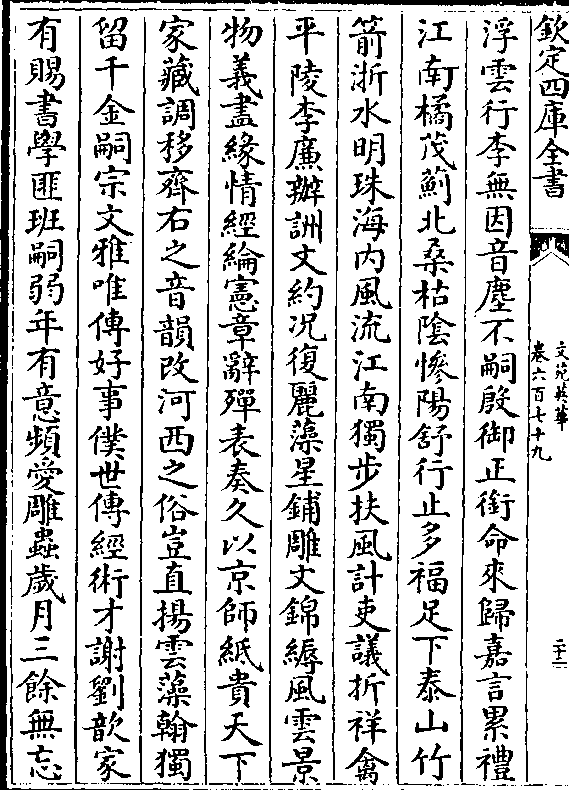 欽定四庫全書
文苑英華
卷六百七十九
二十二
浮雲行李無因音塵不嗣殷御正銜命來歸嘉言累禮
江南橘茂薊北桑枯陰慘陽舒行止多福足下泰山竹
箭浙水明珠海内風流江南獨步扶風計吏議折祥禽
平陵李廉辦詶文約况復麗藻星鋪雕文錦縟風雲景
物義盡緣情經綸憲章辭殫表奏久以京師紙貴天下
家藏調移齊右之音韻改河西之俗豈直揚雲藻翰獨
留千金嗣宗文雅唯傳好事僕世傳經術才謝劉歆家
有賜書學匪班嗣弱年有意頻愛雕蟲歲月三餘無忘